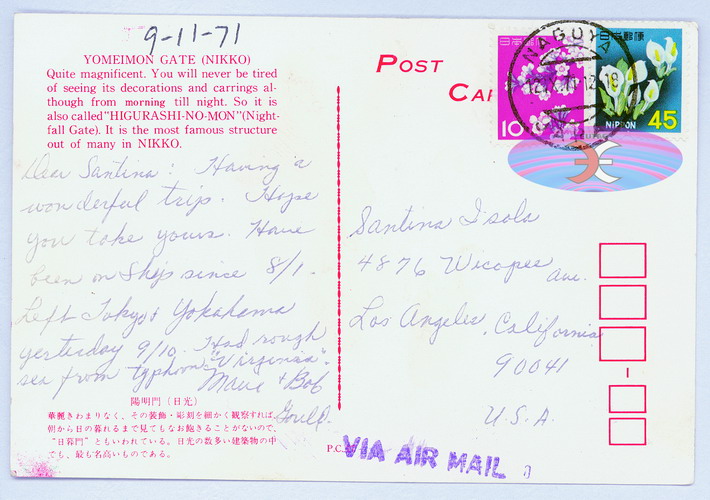 9-11-71
YOMEIMON GATE (NIKKO)
Quite magnificent. You will never be tired
of seeing its decorations and carrings al-
though from morning till night. So it is
also called "HIGURASHI-NO-MON" (Night-
fall Gate). It is the most famous structure
out of many in NIKKO.
Dear Santina: Having a
wonderful trip. Hope
you take yours. Have
been on Ship since 8/1.
Left Tokyo & Yokahama
yesterday 9/10. Had rough
sea from typhoon "Virginia".
& Bob
Gould.
陽明門〔日光〕
華麗きわまりなく、その装飾・彫刻を細かく観察すれば、
朝から日の暮れるまで見てもなお飽きることがないので、
"日暮門"ともいわれている。日光の数多い建築物の中
でも、最も名高いものである。
POST
CAR
日本郵便
10
日本郵便
NIPPON 45
NAGOYA
12.IX.71.12-18
Santina Isola
4876 Wicopee Ave.
Los Angeles, California
90041
U.S.A.
P.C.
VIA AIR MAIL